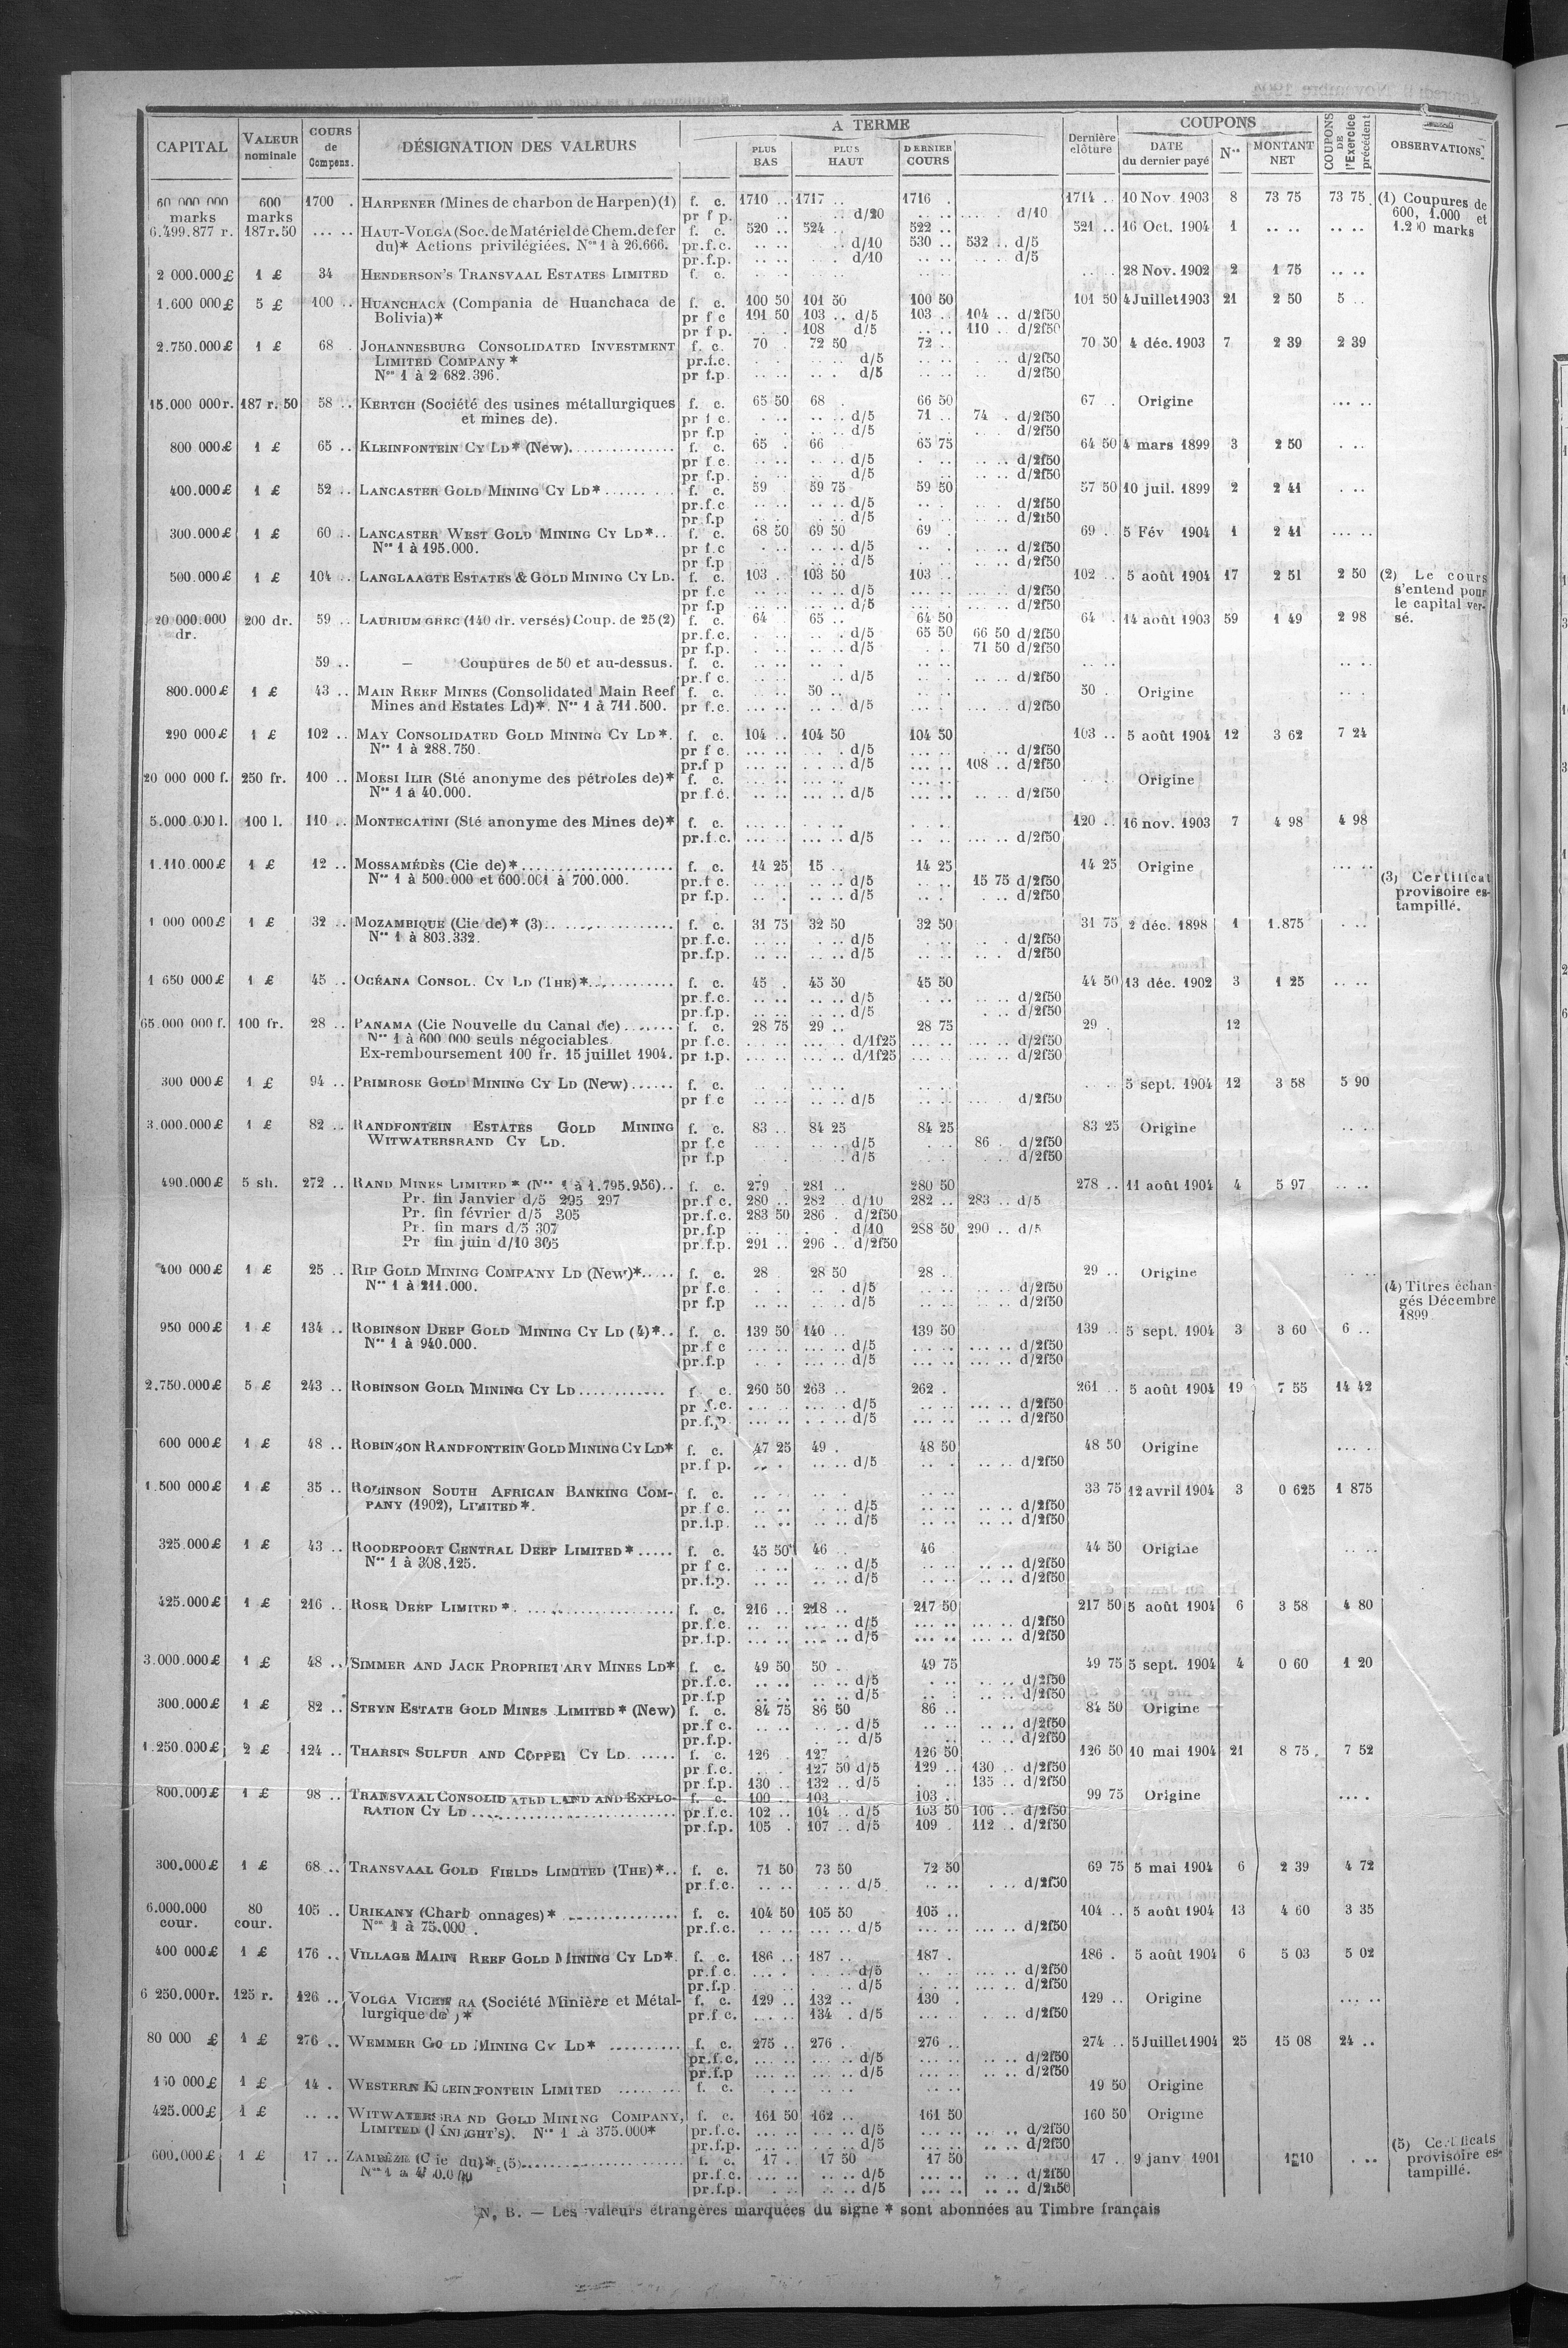 CAPITAL VALEUR nominale COURS de Compens. DÉSIGNATION DES VALEURS A TERME PLUS BAS PLUS HAUT DERNIER COURS Dernière clôture COUPONS DATE du dernier payé Nos MONTANT NET COUPONS DE l'Exercice précédent OBSERVATIONS
60 000 000 marks 600 marks 1700 . HARPENER (Mines de charbon de Harpen) (1) f. c. 1710 .. 1717 .. 1716 . 1714 .. 10 Nov. 1903 8 73 75 73 75 (1) Coupures de 600, 1.000 et 1.200 marks
pr f p. .. d/20 .. .. d/10
6.499.877 r. 187 r. 50 .. .. HAUT-VOLGA (Soc. de Matériel de Chem. de fer f. c. 520 .. 524 .. 522 .. 521 .. 16 Oct. 1904 1 .. .. .. ..
du)* Actions privilégiées. Nos 1 à 26.666. pr.f.c. .. .. .. d/10 530 .. 532 .. d/5
pr.f.p. .. .. . d/10 .. .. d/5
2 000.000 £ 1 £ 34 HENDERSON'S TRANSVAAL ESTATES LIMITED f. c. 28 Nov. 1902 2 1 75 .. ..
1.600 000 £ 5 £ 100 .. HUANCHACA (Compania de Huanchaca de f. c. 100 50 101 50 100 50 101 50 4 Juillet 1903 21 2 50 5 ..
Bolivia)* pr f c 101 50 103 .. d/5 103 .. 104 .. d/2f50
pr f p. 108 d/5 .. .. 110 .. d/2f50
2.750.000 £ 1 £ 68 . JOHANNESBURG CONSOLIDATED INVESTMENT f. c. 70 . 72 50 72 . 70 50 4 déc. 1903 7 2 39 2 39
LIMITED COMPANY * pr.f.c. d/5 d/2f50
Nos 1 à 2 682.396. pr f.p .. .. d/5 d/2f50
15.000 000 r. 187 r. 50 58 .. KERTCH (Société des usines métallurgiques f. c. 65 50 68 . 66 50 67 . Origine .. ..
et mines de). pr f c. .. .. d/5 71 .. 74 . d/2f50
pr f.p .. .. d/5 d/2f50
800 000 £ 1 £ 65 .. KLEINFONTEIN CY LD* (New). f. c. 65 . 66 65 75 64 50 4 mars 1899 3 2 50 . ..
pr f c. .. .. d/5 .. .. d/2f50
pr f.p. .. .. d/5 .. .. d/2f50
400.000 £ 1 £ 52 .. LANCASTER GOLD MINING CY LD* f. c. 59 . 59 75 59 50 57 50 10 juil. 1899 2 2 41 . ..
pr.f.c .. .. d/5 d/2f50
pr.f.p .. .. d/5 .. .. d/2f50
300.000 £ 1 £ 60 .. LANCASTER WEST GOLD MINING CY LD*.. f. c. 68 50 69 50 69 . 69 . 5 Fév 1904 1 2 41 .. ..
Nos 1 à 195.000. pr f.c .. .. d/5 .. .. d/2f50
pr f.p .. .. d/5 .. .. d/2f50
500.000 £ 1 £ 104 .. LANGLAAGTE ESTATES & GOLD MINING CY LD. f. c. 103 . 103 50 103 .. 102 .. 5 août 1904 17 2 51 2 50 (2) Le cours s'entend pour le capital versé.
pr f.c .. .. d/5 .. .. d/2f50
pr f.p .. .. d/5 .. .. d/2f50
20 000.000 dr. 200 dr. 59 .. LAURIUM GREC (140 dr. versés) Coup. de 25 (2) f. c. 64 65 .. 64 50 64 . 14 août 1903 59 1 49 2 98
pr.f.c. . .. d/5 65 50 66 50 d/2f50
pr f.p. .. .. d/5 71 50 d/2f50
59 .. — Coupures de 50 et au-dessus. f. c. .. .. .. ..
pr.f c. .. .. d/5 .. .. d/2f50
800.000 £ 1 £ 43 .. MAIN REEF MINES (Consolidated Main Reef f. c. .. .. 50 .. 50 . Origine
Mines and Estates Ld)*. Nos 1 à 711.500. pr f.c. .. .. d/5 d/2f50
290 000 £ 1 £ 102 .. MAY CONSOLIDATED GOLD MINING CY LD*. f. c. 104 .. 104 50 104 50 103 .. 5 août 1904 12 3 62 7 24
Nos 1 à 288.750. pr f c. .. .. d/5 d/2f50
pr.f p .. .. d/5 108 .. d/2f50
20 000 000 f. 250 fr. 100 .. MOESI ILIR (Sté anonyme des pétroles de)* f. c. .. .. Origine
Nos 1 à 40.000. pr f.c. .. .. d/5 .. .. d/2f50
5.000.000 l. 100 l. 110 .. MONTECATINI (Sté anonyme des Mines de)* f. c. .. .. 120 .. 16 nov. 1903 7 4 98 4 98
pr.f.c. .. .. d/5 d/2f50
1.110.000 £ 1 £ 12 .. MOSSAMÉDÈS (Cie de)* f. c. 14 25 15 .. 14 25 14 25 Origine .. ..
Nos 1 à 500.000 et 600.001 à 700.000. pr.f c. .. .. d/5 15 75 d/2f50 (3) Certificat provisoire estampillé.
pr f.p. .. .. d/5 .. .. d/2f50
1 000 000 £ 1 £ 32 .. MOZAMBIQUE (Cie de)* (3) f. c. 31 75 32 50 32 50 31 75 2 déc. 1898 1 1.875 . ..
Nos 1 à 803.332. pr.f.c. .. .. d/5 d/2f50
pr.f.p. .. .. d/5 d/2f50
1 650 000 £ 1 £ 45 .. OCÉANA CONSOL. CY LD (THE)* f. c. 45 . 45 50 45 50 44 50 13 déc. 1902 3 1 25 .. ..
pr.f.c. .. .. d/5 .. .. d/2f50
pr.f.p. .. .. d/5 .. .. d/2f50
65.000 000 f. 100 fr. 28 .. PANAMA (Cie Nouvelle du Canal de) f. c. 28 75 29 .. 28 75 29 . 12
Nos 1 à 600 000 seuls négociables pr f.c. .. .. d/1f25 .. .. d/2f50
Ex-remboursement 100 fr. 15 juillet 1904. pr f.p. .. .. d/1f25 .. .. d/2f50
300 000 £ 1 £ 94 .. PRIMROSE GOLD MINING CY LD (New) f. c. 5 sept. 1904 12 3 58 5 90
pr f c .. .. d/5 d/2f50
3.000.000 £ 1 £ 82 .. RANDFONTEIN ESTATES GOLD MINING f. c. 83 .. 84 25 84 25 83 25 Origine
WITWATERSRAND CY LD. pr f.c .. .. d/5 86 . d/2f50
pr f.p d/5 d/2f50
490.000 £ 5 sh. 272 .. RAND MINES LIMITED * (Nos 1 à 1.795.956).. f. c. 279 281 .. 280 50 278 .. 11 août 1904 4 5 97 .. ..
Pr. fin Janvier d/5 295 297 pr.f c. 280 .. 282 .. d/10 282 .. 283 .. d/5
Pr. fin février d/5 305 pr.f.c. 283 50 286 . d/2f50
Pr. fin mars d/5 307 pr.f.p d/10 288 50 290 .. d/5
Pr fin juin d/10 305 pr.f.p. 291 .. 296 .. d/2f50
400 000 £ 1 £ 25 .. RIP GOLD MINING COMPANY LD (New)* f. c. 28 28 50 28 . 29 .. Origine
Nos 1 à 211.000. pr f.c. d/5 .. .. d/2f50 (4) Titres échangés Décembre 1899.
pr f.p .. .. d/5 .. .. d/2f50
950 000 £ 1 £ 134 .. ROBINSON DEEP GOLD MINING CY LD (4)*.. f. c. 139 50 140 .. 139 50 139 .. 5 sept. 1904 3 3 60 6 ..
Nos 1 à 940.000. pr.f c .. .. d/5 .. .. d/2f50
pr.f.p .. .. d/5 .. .. d/2f50
2.750.000 £ 5 £ 243 .. ROBINSON GOLD MINING CY LD f. c. 260 50 263 .. 262 . 261 .. 5 août 1904 19 7 55 14 42
pr f.c. .. .. d/5 .. .. d/2f50
pr.f.p. .. .. d/5 .. .. d/2f50
600 000 £ 1 £ 48 .. ROBINSON RANDFONTEIN GOLD MINING CY LD* f. c. 47 25 49 . 48 50 48 50 Origine .. ..
pr.f p. .. .. d/5 .. .. d/2f50
1.500 000 £ 1 £ 35 .. ROBINSON SOUTH AFRICAN BANKING COM- f. c. .. .. 33 75 12 avril 1904 3 0 625 1 875
PANY (1902), LIMITED *. pr.f c. .. .. d/5 .. .. d/2f50
pr.f.p. .. .. d/5 .. .. d/2f50
325.000 £ 1 £ 43 .. ROODEPOORT CENTRAL DEEP LIMITED * f. c. 45 50 46 .. 46 44 50 Origine
Nos 1 à 308.125. pr f c. .. .. d/5 .. .. d/2f50
pr.f.p. .. .. d/5 .. .. d/2f50
425.000 £ 1 £ 216 .. ROSE DEEP LIMITED *. f. c. 216 .. 218 .. 217 50 217 50 5 août 1904 6 3 58 4 80
pr.f.c. .. .. d/5 .. .. d/2f50
pr.f.p. .. .. d/5 .. .. d/2f50
3.000.000 £ 1 £ 48 .. SIMMER AND JACK PROPRIETARY MINES LD* f. c. 49 50 50 . 49 75 49 75 5 sept. 1904 4 0 60 1 20
pr.f.c. .. .. d/5 .. .. d/2f50
pr.f.p .. .. d/5 .. .. d/2f50
300.000 £ 1 £ 82 .. STEYN ESTATE GOLD MINES LIMITED * (New) f. c. 84 75 86 50 86 .. 84 50 Origine
pr.f c. .. .. d/5 .. .. d/2f50
pr.f.p. .. .. d/5 .. .. d/2f50
1.250.000 £ 2 £ 124 .. THARSIS SULFUR AND COPPER CY LD. f. c. 126 . 127 126 50 126 50 10 mai 1904 21 8 75 7 52
pr.f.c. 127 50 d/5 129 .. 130 .. d/2f50
pr.f.p. 130 .. 132 .. d/5 135 .. d/2f50
800.000 £ 1 £ 98 .. TRANSVAAL CONSOLIDATED LAND AND EXPLO- f. c. 100 .. 103 103 . 99 75 Origine .. ..
RATION CY LD pr.f.c. 102 .. 104 .. d/5 103 50 106 .. d/2f50
pr.f.p. 105 . 107 .. d/5 109 . 112 .. d/2f50
300.000 £ 1 £ 68 .. TRANSVAAL GOLD FIELDS LIMITED (THE)*.. f. c. 71 50 73 50 72 50 69 75 5 mai 1904 6 2 39 4 72
pr.f.c. .. .. d/5 .. .. d/2f50
6.000.000 cour. 80 cour. 105 .. URIKANY (Charbonnages)* f. c. 104 50 105 50 105 .. 104 .. 5 août 1904 13 4 60 3 35
Nos 1 à 75.000 . pr.f.c. .. .. d/5 .. .. d/2f50
400 000 £ 1 £ 176 .. VILLAGE MAIN REEF GOLD MINING CY LD*. f. c. 186 .. 187 .. 187 . 186 . 5 août 1904 6 5 03 5 02
pr.f c. .. .. d/5 .. .. d/2f50
pr.f.p .. .. d/5 .. .. d/2f50
6 250.000 r. 125 r. 126 .. VOLGA VICHERA (Société Minière et Métal- f. c. 129 .. 132 .. 130 . 129 .. Origine .. ..
lurgique de) * pr.f c. .. .. 134 . d/5 d/2f50
80 000 £ 1 £ 276 .. WEMMER GOLD MINING CY LD* f. c. 275 .. 276 276 .. 274 .. 5 Juillet 1904 25 15 08 24 ..
pr.f.c. .. .. d/5 .. .. d/2f50
pr.f.p .. .. d/5 .. .. d/2f50
£ 1 £ 14 . WESTERN KLEINFONTEIN LIMITED f. c. .. .. 19 50 Origine
425.000 £ 1 £ .. .. WITWATERSRAND GOLD MINING COMPANY, f. c. 161 50 162 .. 161 50 160 50 Origine
LIMITED (KNIGHT'S). Nos 1 à 375.000* pr.f.c. .. .. d/5 .. .. d/2f50
pr.f.p. .. .. d/5 .. .. d/2f50
600.000 £ 1 £ 17 .. ZAMBÈZE (Cie du)* (5) f. c. 17 . 17 50 17 50 17 . 9 janv 1901 (5) Certificats provisoire estampillé.
Nos 1 à pr.f.c. .. .. d/5 .. .. d/2f50
pr.f.p. .. .. d/5 .. .. d/2f50
N. B. — Les valeurs étrangères marquées du signe * sont abonnées au Timbre français